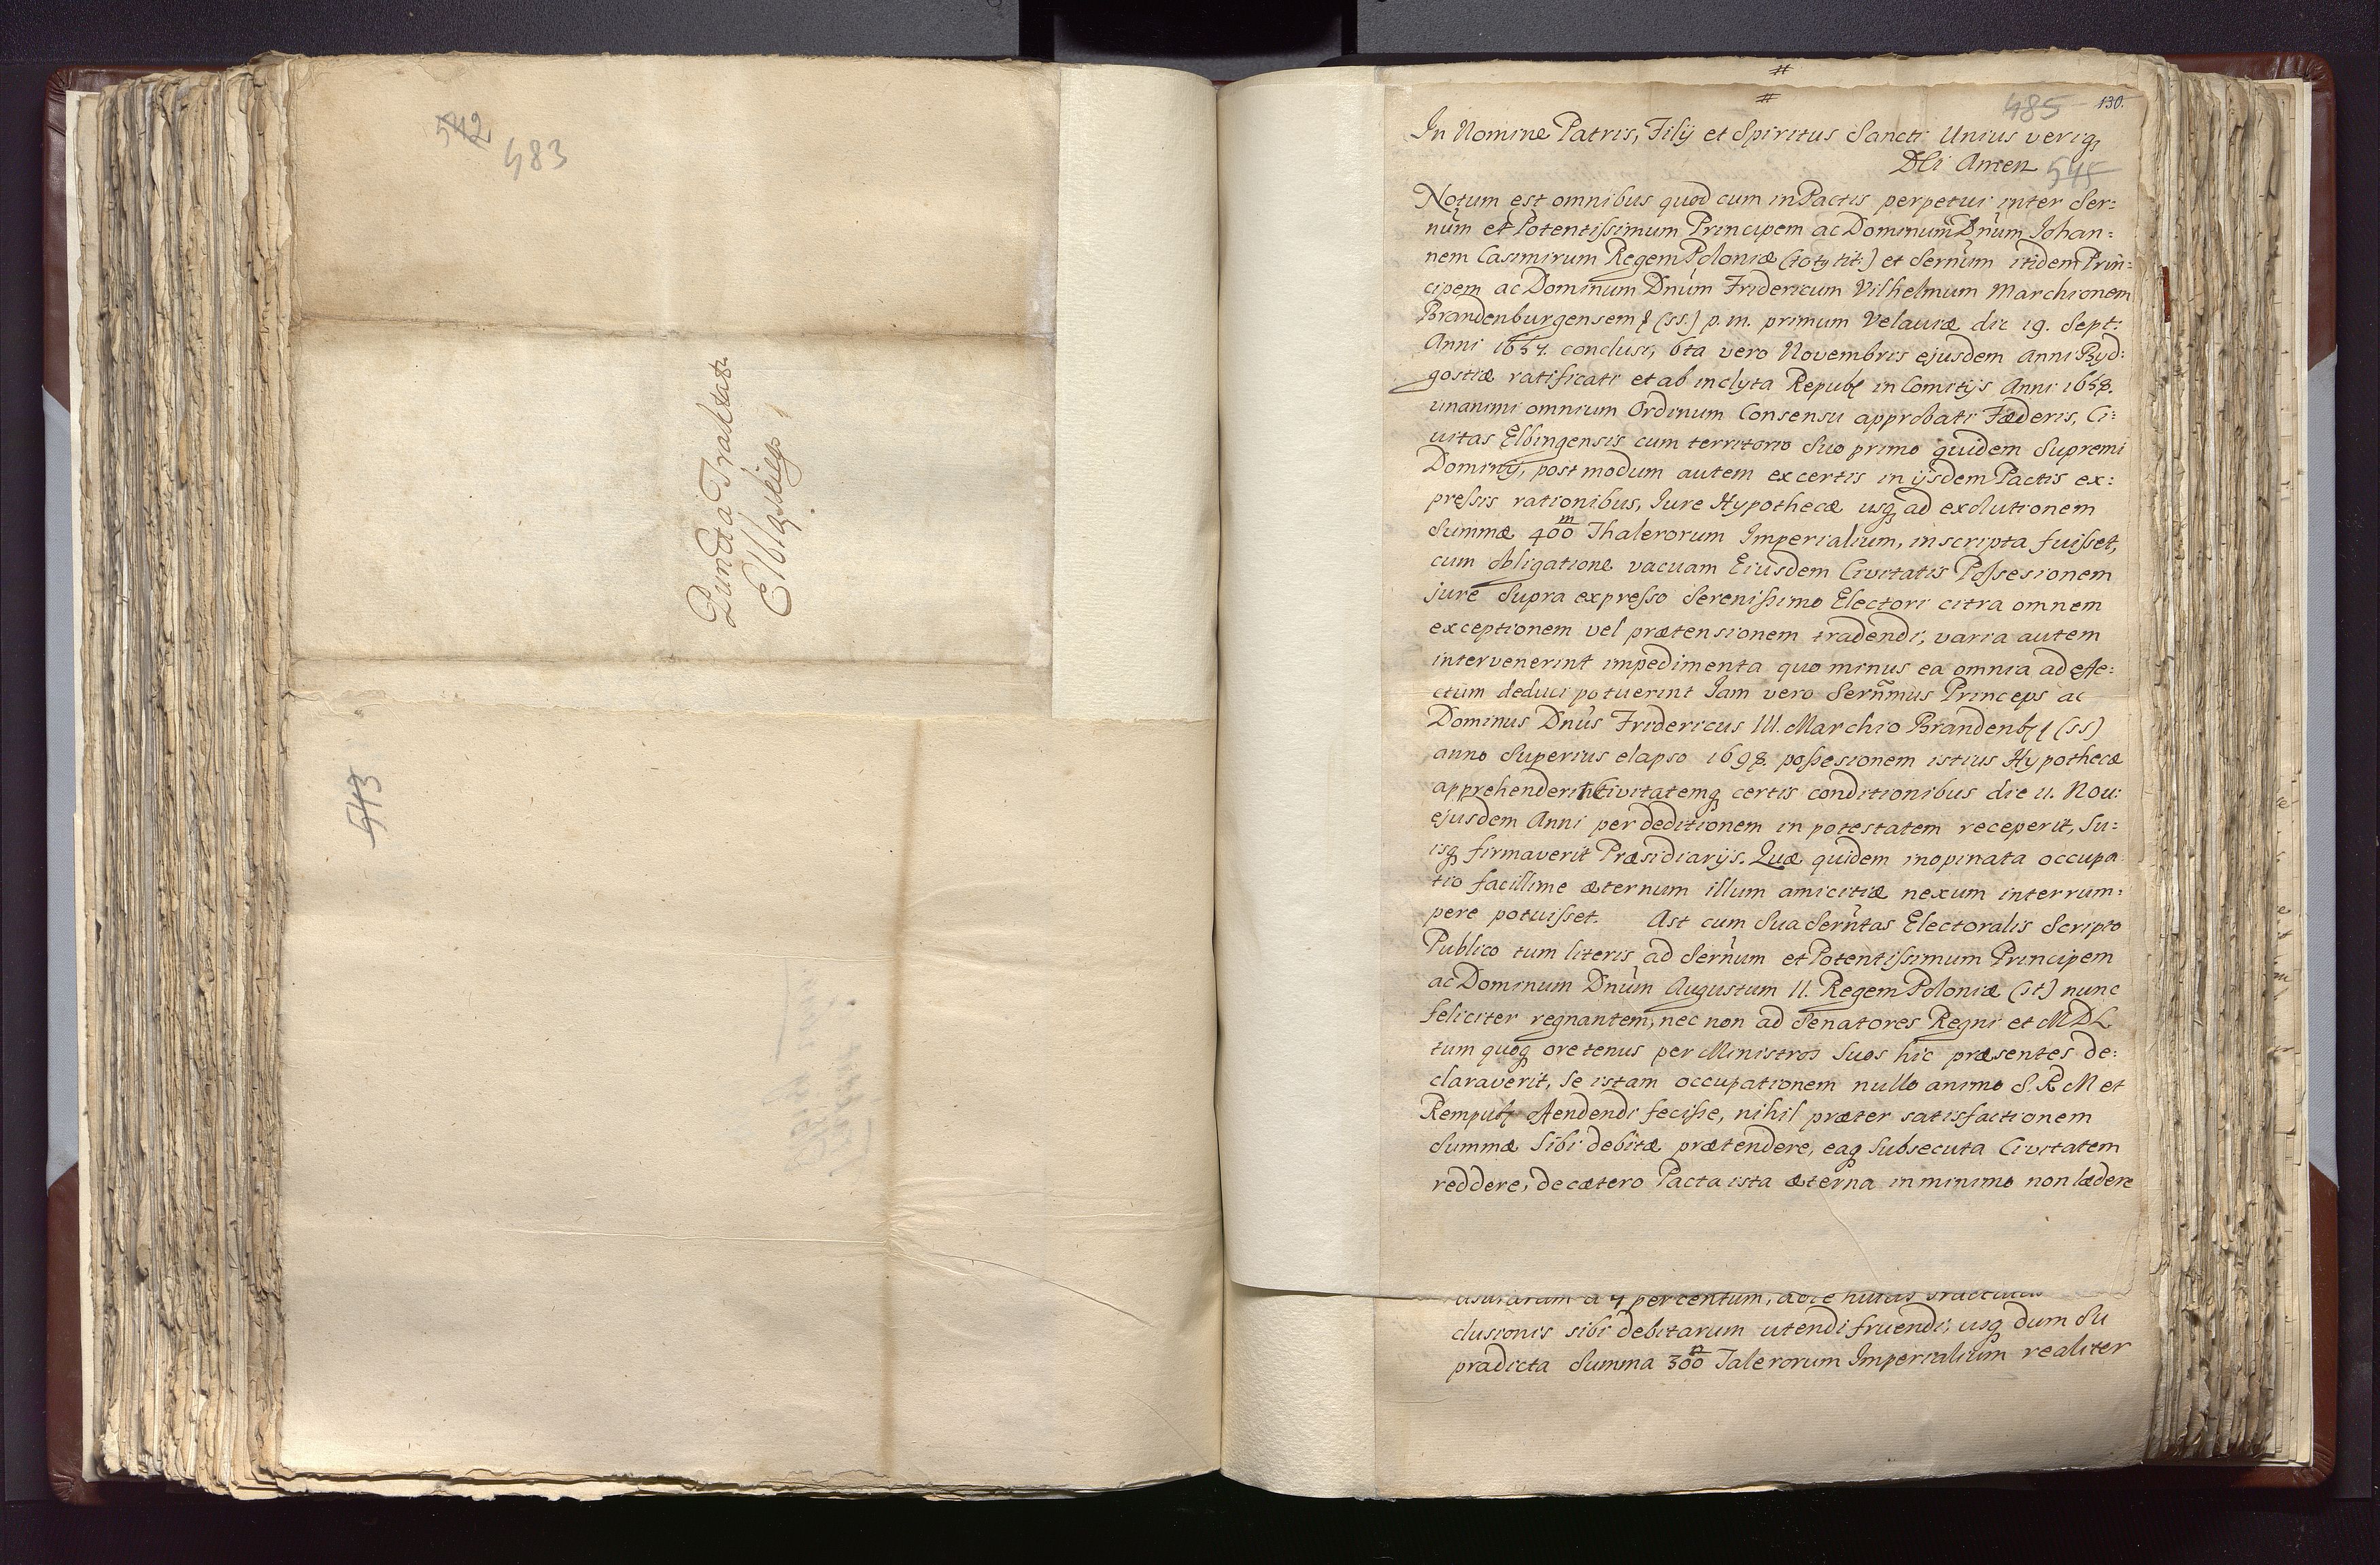 542
483
Puncta Traktatu
Elbląskieg
543
#
#
485 130.
In Nomine Patris, Filij et Spiritus Sancti Unius veriq,
DEi Amen
545
Notum est omnibus quod cum in Pactis perpetui inter Ser:
num et Potentissimum Principem ac Dominum Dnum Johan:
nem Casimirum Regem Poloniæ (toty tit:) et Sernum itidem Prin:
cipem ac Dominum Dnum Fridericum Vilhelmum Marchionem
Brandenburgensem (ss.) p. m. primum Velaviæ die 19. Sept:
Anni 1657. conclusi, 6ta vero Novembris ejusdem Anni Byd:
gostiæ ratificati et ab inclyta Republ in Comitijs Anni 1658.
unanimi omnium Ordinum Consensu approbati Fæderis, Ci:
uitas Elbingensis cum territorio Suo primo quidem Supremi
Dominij, postmodum autem ex certis in ijsdem Pactis ex:
pressis rationibus, Jure Hypothecæ usq ad exolutionem
Summæ 400 m Thalerorum Imperialium, inscripta fuisset,
cum obligatione vacuam Eiusdem Civitatis Possesionem
jure Supra expresso Serenissimo Electori citra omnem
exceptionem vel prætensionem tradendi, varia autem
intervenerint impedimenta quo minus ea omnia ad effe:
ctum deduci potuerint Jam vero Sernmus Princeps ac
Dominus Dnus Fridericus III. Marchio Brandenb (ss)
anno Superius elapso 1698. possesionem istius Hypothecæ
apprehenderit Civitatemq certis conditionibus die 11. Nou:
ejusdem Anni per deditionem in potestatem receperit, Su:
isq firmaverit Præsidiarijs. Quæ quidem inopinata occupa
tio facillime æternum illum amicitiæ nexum interrum:
pere potuisset. Ast cum Sua Serntas Electoralis Scripto
Publico tum literis ad Sernum et Potentissimum Principem
ac Dominum Dnum Augustum II. Regem Poloniæ (st) nunc
feliciter regnantem, nec non ad Senatores Regni et MDL
tum quoq oretenus per Ministros Suos hic præsentes de:
claraverit, Se istam occupationem nullo animo S R M et
Rempubl offendendi fecisse, nihil præter satisfactionem
Summæ Sibi debitæ prætendere, eaq Subsecuta Civitatem
reddere, de cætero Pacta ista æterna in minimo non lædere
a 4 percentum, a die huius
clusionis sibi debitarum utendi fruendi, usq dum Su
prædicta Summa 300 m Talerorum Imperialium realiter